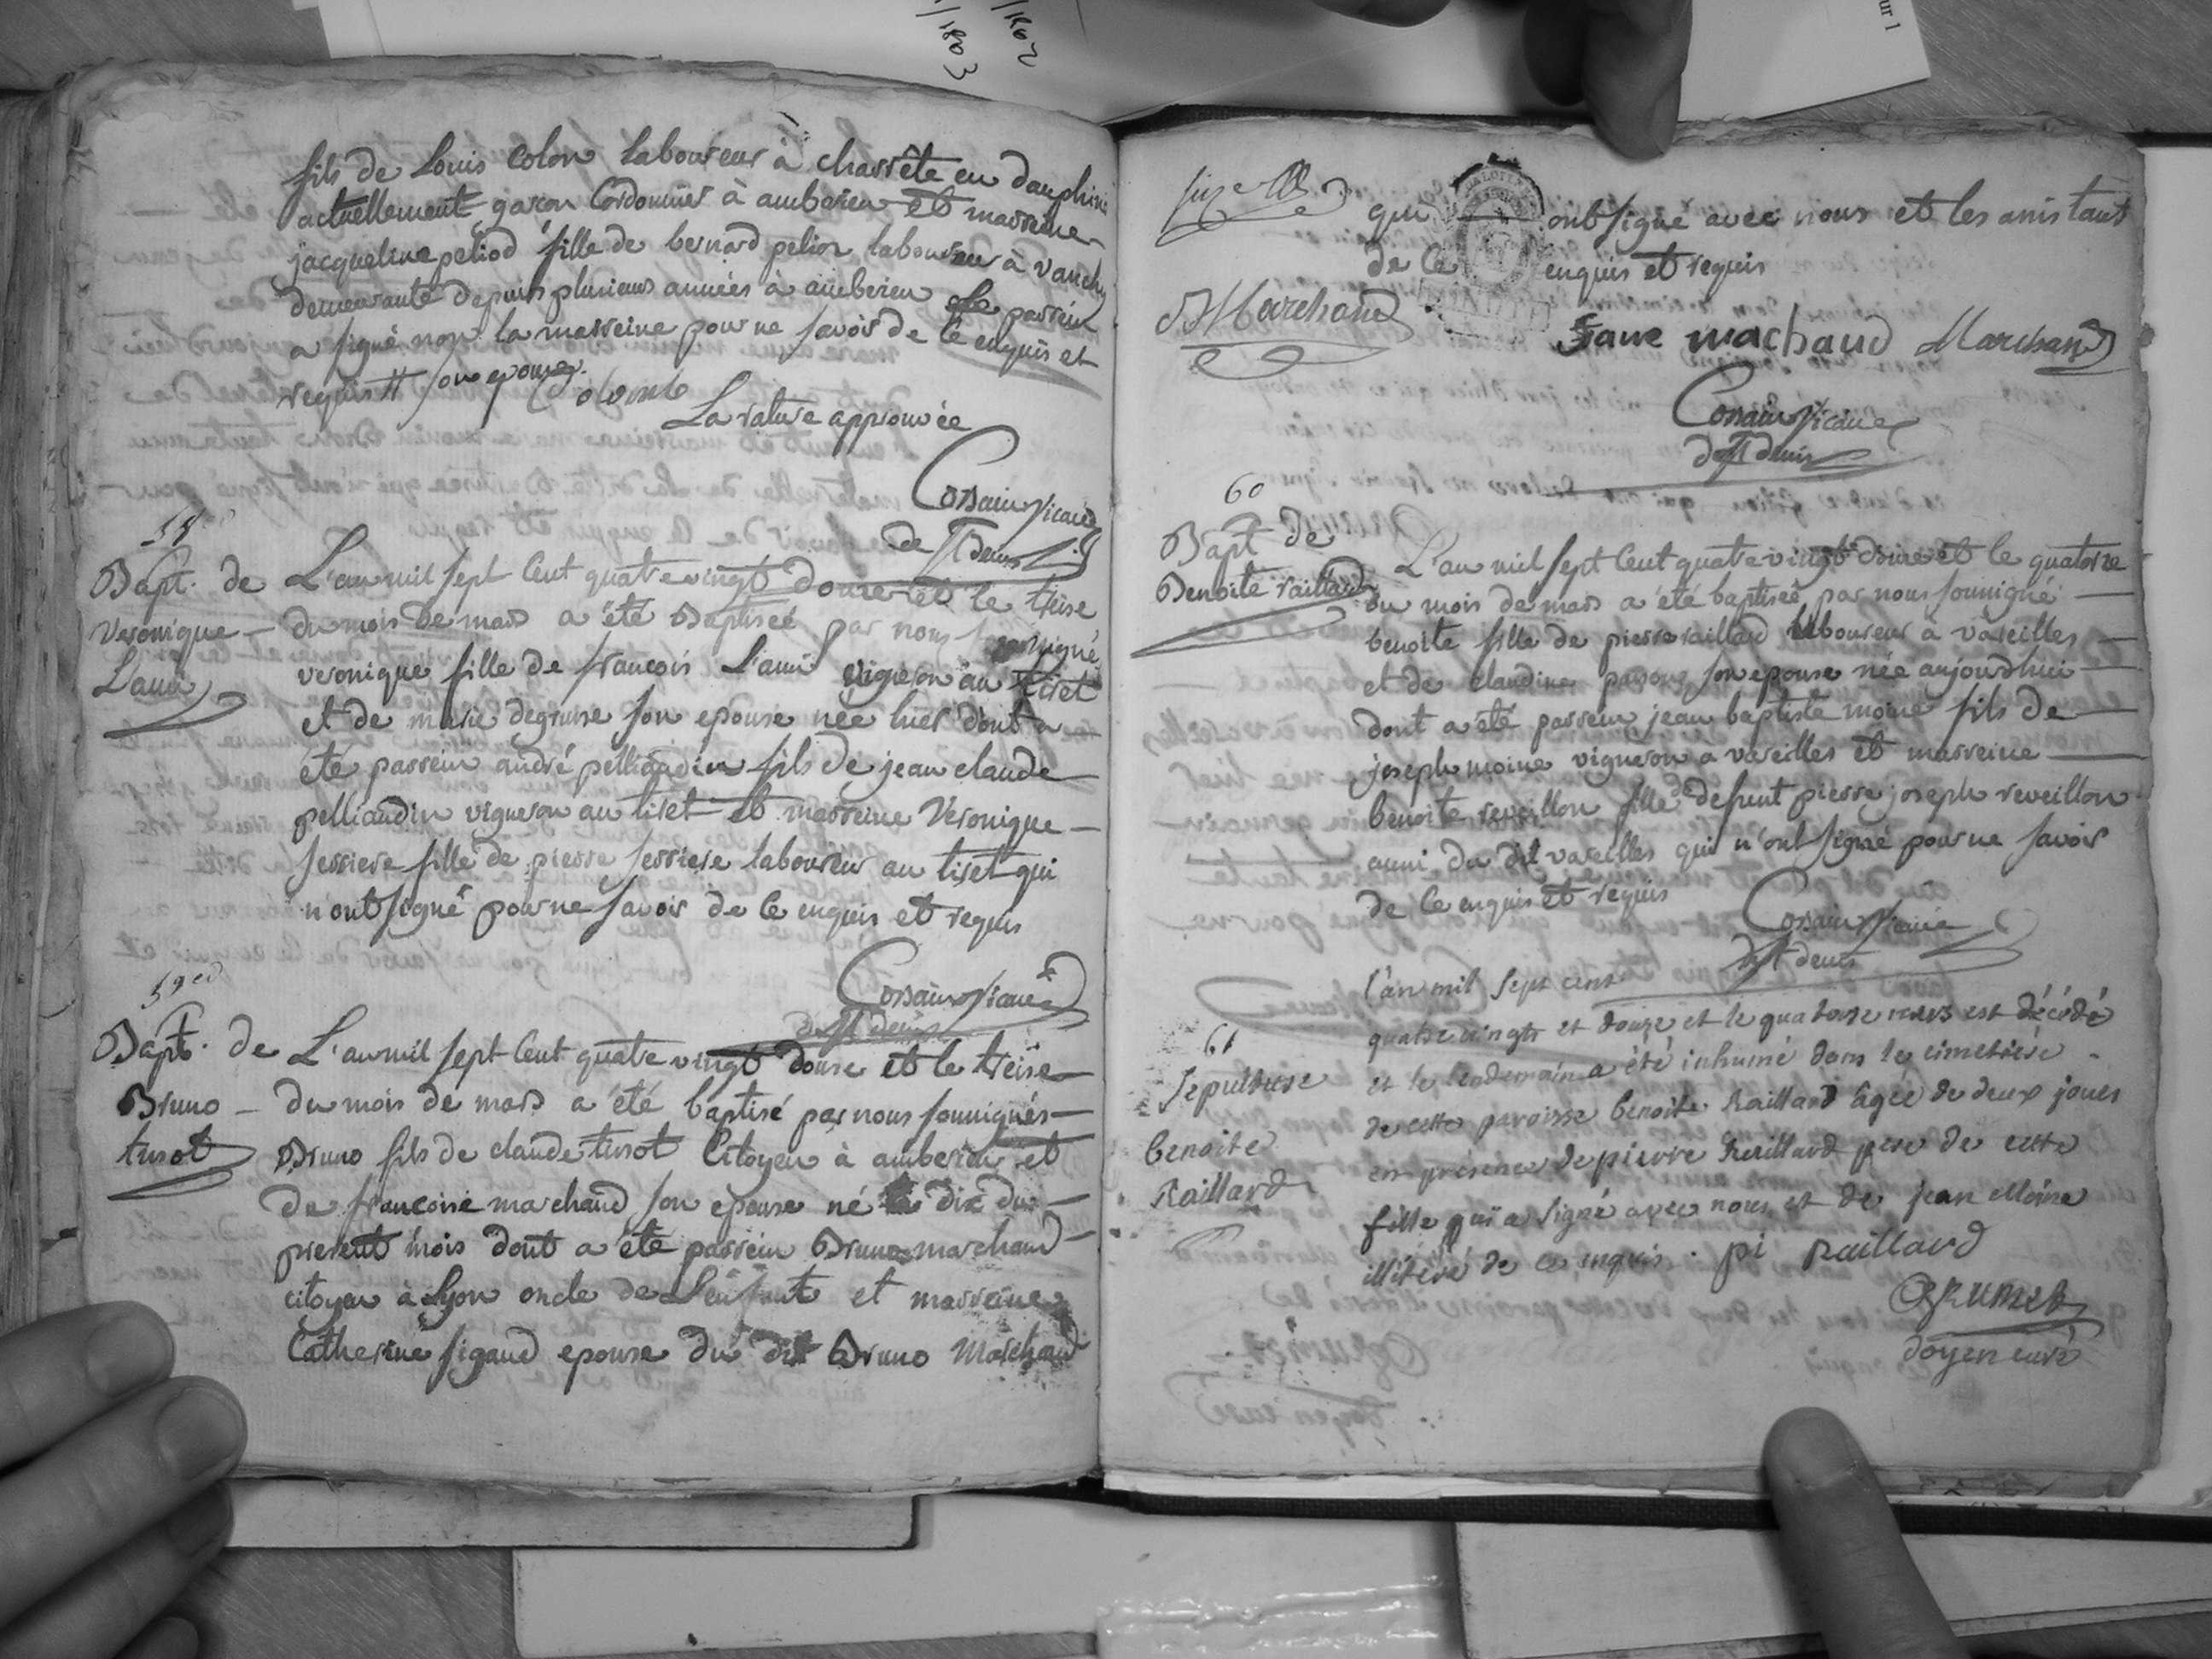 /1802
/1803
ur 1
fils de Louis Colon laboureur à charrête en dauphiné
actuellement garcon Cordonnier à amberieu et marreine
jacqueline peliod fille de bernard pelior laboureur à
demeurante depuis plusieurs années à amberieu le parrein
a signé non la marreine pour ne savoir de ce enquis et
requis # son epouse.
Colomb
La rature approuvée
Cossain vicaire
de St denis
58
Bapt. de
Veronique
Lami
L'an mil sept cent quatre vingt douze et le treise
du mois de mars a été Baptisée par nous soussigné
veronique fille de francois Lami vigneron au tiret
et de marie degruse son epouse née hier dont a
été parrein andré pelliaudin fils de jean claude
pelliaudin vigneron au tiret et marreine Veronique
ferriere fille de pierre ferriere laboureur au tiret qui
n'ont signé pour ne savoir de ce enquis et requis
Cossain vicaire
de St denis
59
Bapt. de
Bruno
tirot
L'an mil sept cent quatre vingt douse et le treise
du mois de mars a été baptisé par nous soussignés
Bruno fils de claude tirot Citoyen à amberieu et
de francoise marchand son epouse né le dix du
present mois dont a été parrein Bruno marchand
citoyen à Lyon oncle de L'enfant et marreine
Catherine sigaud epouse du dit Bruno Marchand
qui ont signé avec nous et les assistants
de ce enquis et requis
BMarchand
Jane machaud Marchand
Cossain vicaire
de St denis
60
Bapt de
Benoite raillard
L'an mil sept cent quatre vingt douse et le quatorze
du mois de mars a été baptisée par nous soussigné
benoite fille de pierre raillard laboureur à vareilles
et de claudine son epouse née aujourdhui
dont a été parrein jean baptiste moine fils de
joseph moine vigneron a vareilles et marreine
benoite reveillon fille de defunt pierre joseph reveillon
aussi du dit vareilles qui n'ont signé pour ne savoir
de ce enquis et requis
Cossain vicaire
de St denis
61
Sepulture
benoite
Raillard
l'an mil sept cent
quatre vingts et douze et le quatorse mars est décédé
et le lendemain a été inhumé dans le cimetière
de cette paroisse benoite Raillard âgée de deux jours
en présence de pierre Raillard pere de cette
fille qui a signé avec nous et de jean Moine
illiteré de ce enquis. pi Raillard
GRUMET
doyen curé